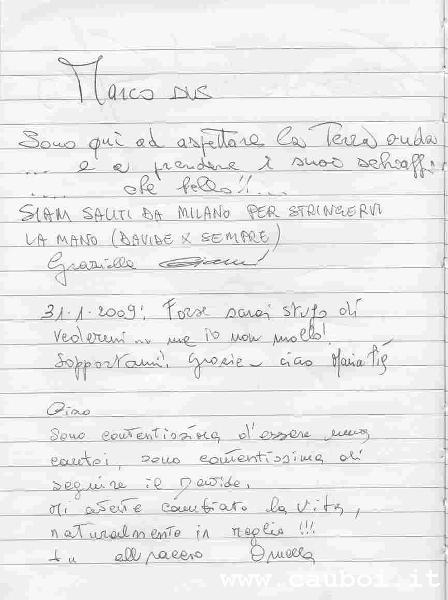 Marco
Sono qui ad aspettare la Terza onda
... e a prendere i suoi schiaffi
.... che bello!!...
SIAM SALITI DA MILANO PER STRINGERVI
LA MANO (DAVIDE X SEMPRE)
Graziella
31.1.2009! Forse sarai stufo di
vedermi... ma io non mollo!
Sopportami! Grazie - ciao Maria Pia
Ciao
Sono contentissima d'essere una
sono contentissima di
seguire il Davide.
Mi avete cambiato la vita,
naturalmente in meglio!!!
Ornella
www.cauboi.it